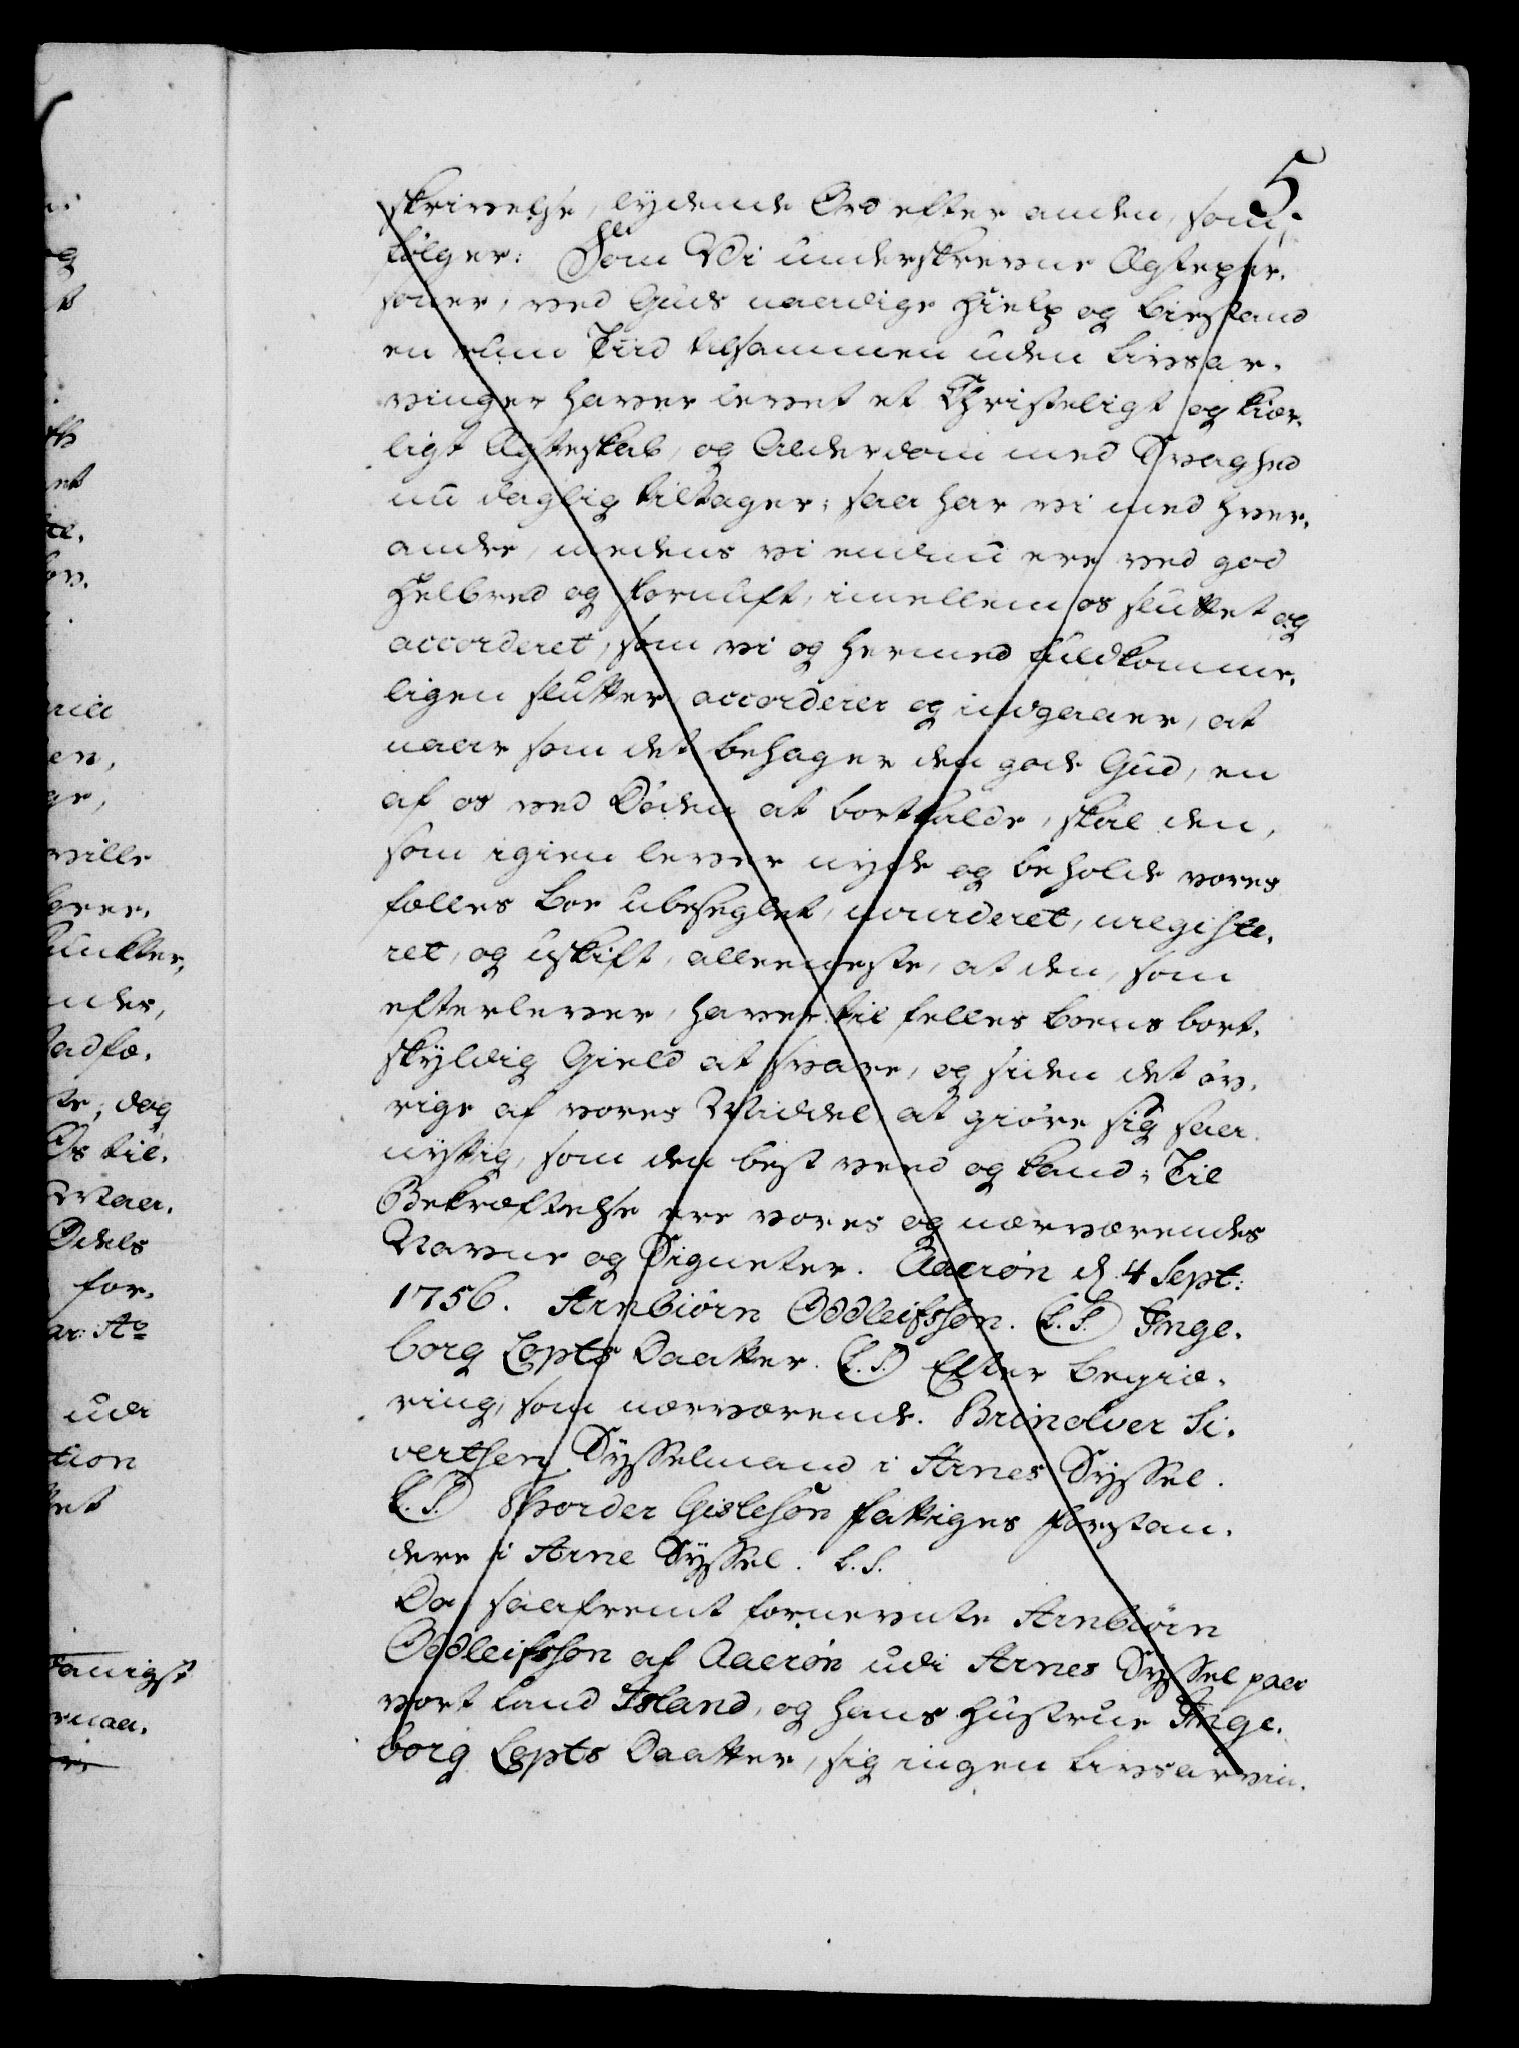 5
skrivelse, lydende Ord efter anden, som
følger: Som Vi underskrevne Ægteper-
soner, ved Guds naadige Hielp og Biestand
en  Tiid tilsammen uden Livsar-
vinger haver levet et Christeligt og kier-
ligt Ægteskab, og Alderdom med Svaghed
nu daglig tiltager; saa har vi med hver-
andre, medens vi endnu ere ved god
Helbred og Fornuft, imellem os sluttet og
accorderet, som vi og hermed fuldkomme-
ligen slutter accorderer og indgaaer, at
naar som det behager den gode Gud, en
af os ved Døden at bortkalde, skal den,
som igien lever nyde og beholde vores
fælles Boe ubeseglet, uvurderet, uregiste-
ret, og uskift, alleeneste, at den, som
efterlever, haver til felles Boens bort-
skyldig Gield at svare, og siden det øv-
rige af vores Middel at giøre sig saa
nyttig, som den best veed og kand; Til
Bekræftelse ere vores og nærværendes
Navne og Signeter. Aaerøn d. 4 Sept:
1756. Arnbiörn Oddleifsson. (L.S.) Inge-
borg Lopts Daatter. (L.S.) Efter Begiæ-
ring, som nærværende. Brinolver Si-
vertsen Sysselmand i Arnes Syssel.
(L.S.) Thorder Gislesøn Fattiges Forstan-
dere i Arne Syssel. L.S.
Da saafremt fornevnte Arnbiörn
Oddleifsson af Aaerøn udi Arnes Syssel paa
vort Land Island, og hans Hustrue Inge-
borg Lopts Daatter, sig ingen Livsarvin-